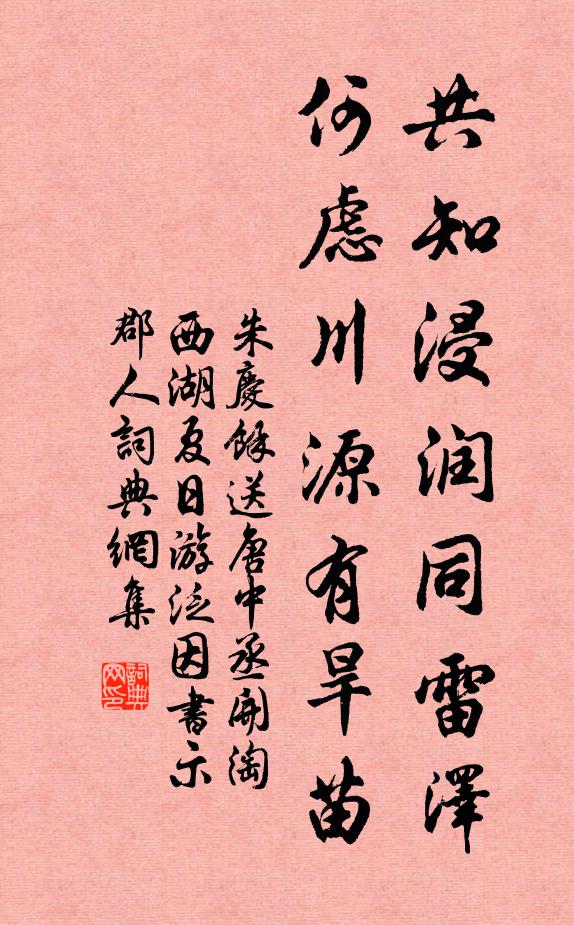 共知浸润同雷澤
何慮川源有旱苗
朱慶餘送唐中丞開淘
西湖夏日游泛因書示
郡人詞典網集
詞典
网印